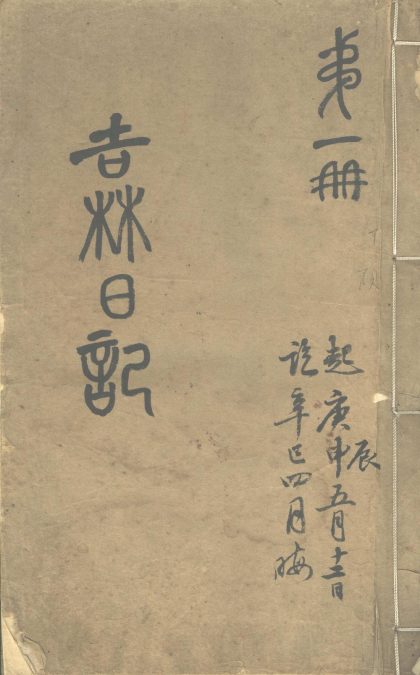 弟一冊
吉林日記
起庚申辰五月十二日
訖辛巳四月晦